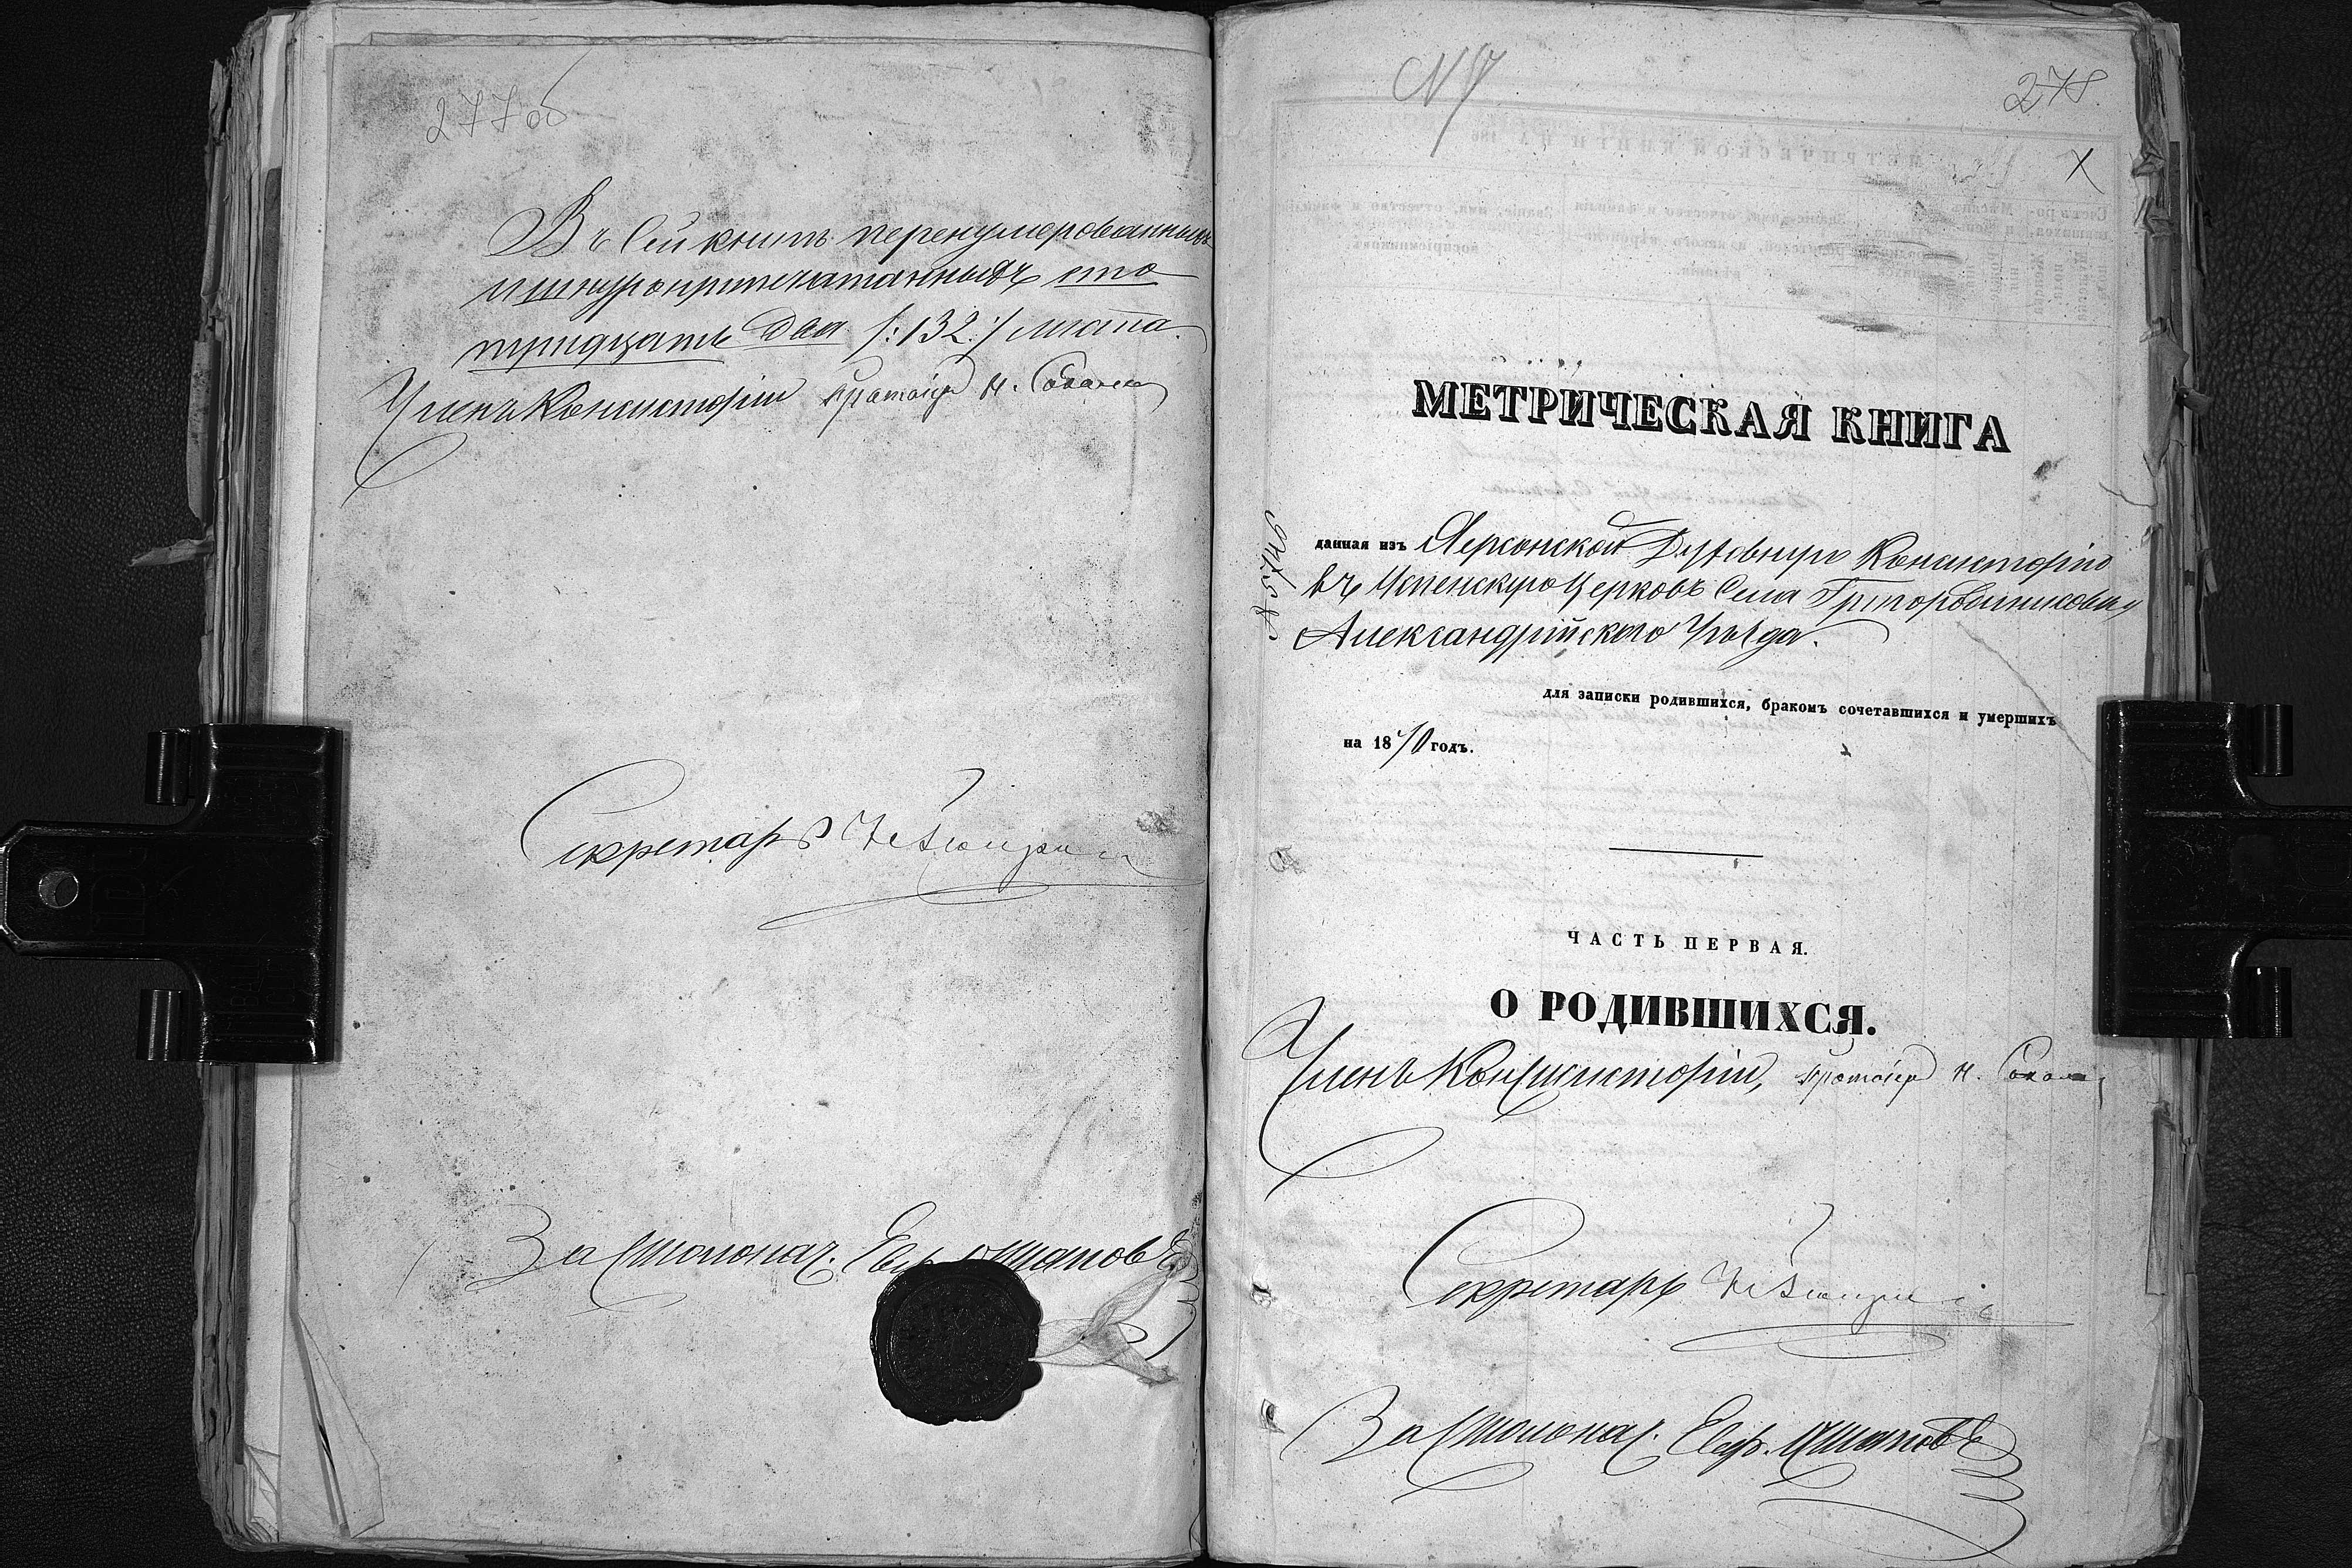 277 об
Въ сей книгѣ перенумерованныхъ
и шнуроприпечатанныхъ сто
тридцать два /:132:/ листа.
Членъ Консисторіи Протоіер Н.
Секретарь
За Столонач. Евф.
N 7
278.
X
МЕТРИЧЕСКАЯ КНИГА
данная изъ Херсонской Духовную Консисторіи
въ Успенскую Церковь Села
Александрійского Уѣзда.
для записки родившихся, бракомъ сочетавшихся и умершихъ
на 1870 годъ.
ЧАСТЬ ПЕРВАЯ.
О РОДИВШИХСЯ.
Членъ Консисторіи, Протоіер Н.
Секретарь
За Столонач. Евф.